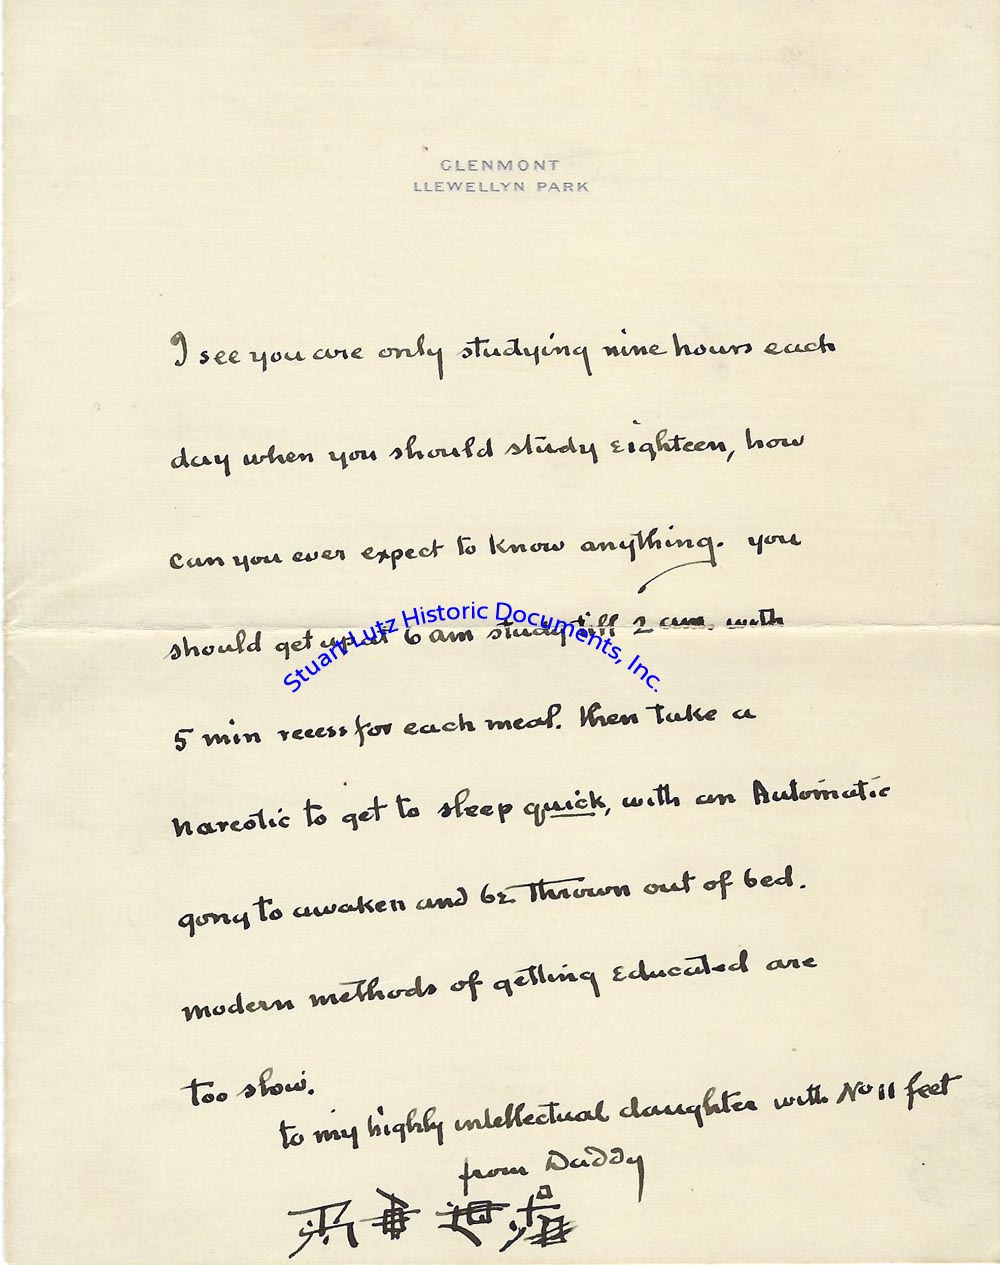 GLENMONT
LLEWELLYN PARK
I see you are only studying nine hours each
day when you should study eighteen, how
can you ever expect to know anything. you
should get up at 6 am study till 2 am. with
5 min recess for each meal. then take a
narcotic to get to sleep quick, with an Automatic
gong to awaken and be thrown out of bed.
modern methods of getting educated are
too slow.
to my highly intellectual daughter with No 11 feet
from Daddy
Stuart Lutz Historic Documents, Inc.